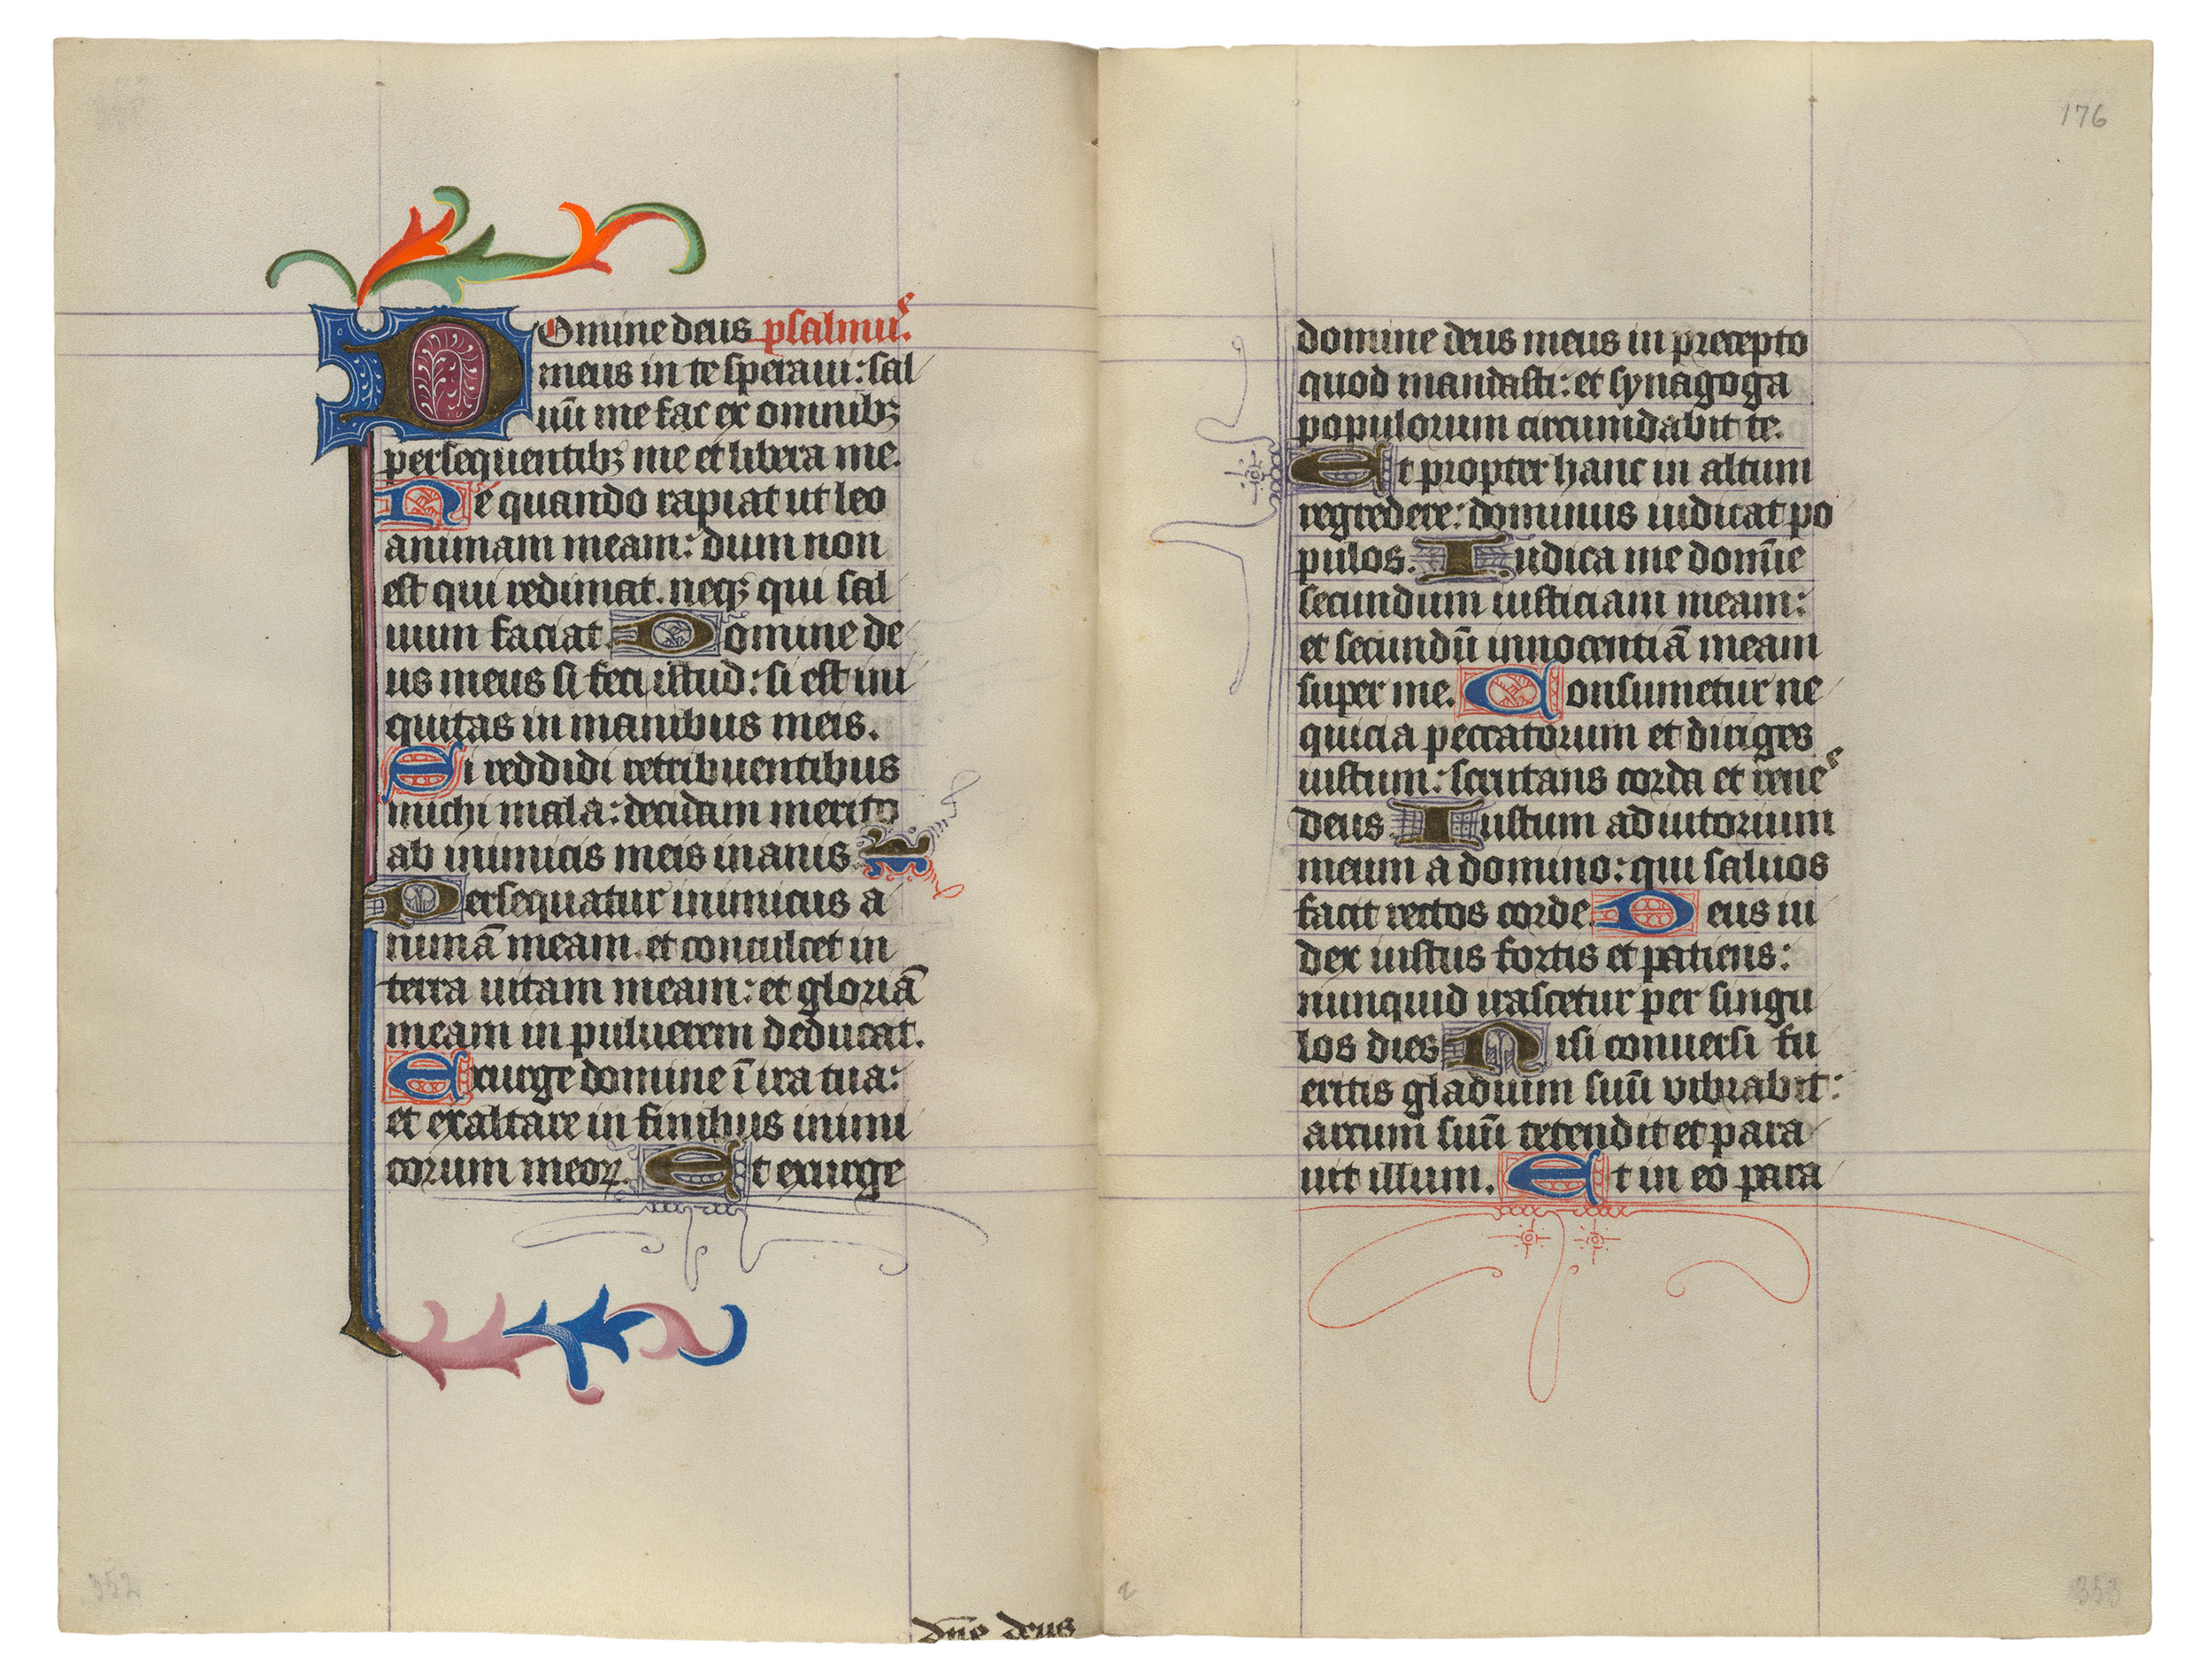 Domine deus psalmus
meus in te speraui: sal
uū me fac ex omnibꝫ
persequentibꝫ me et libera me.
Ne quando rapiat ut leo
animam meam: dum non
est qui redimat. neqꝫ qui sal
uum faciat. Domine de
us meus si feci istud: si est ini
quitas in manibus meis.
Si reddidi retribuentibus
michi mala: decidam merito
ab inimicis meis inanis.
Persequatur inimicus a
nimā meam. et conculcet in
terra uitam meam: et gloriā
meam in puluerem deducat.
Exurge domine ī ira tua:
et exaltare in finibus inimi
corum meoꝝ. Et exurge
dn̄e deus
176
domine deus meus in precepto
quod mandasti: et synagoga
populorum circumdabit te.
Et propter hanc in altum
regredere: dominus iudicat po
pulos. Iudica me domīe
secundum iusticiam meam:
et secundū innocentiā meam
super me. Consumetur ne
quicia peccatorum et diriges
iustum: scrutans corda et renes
deus. Iustum adiutorium
meum a domino: qui saluos
facit rectos corde. Deus iu
dex iustus fortis et patiens:
nunquid irascetur per singu
los dies. Nisi conuersi fu
eritis gladium suū vibrabit:
arcum suū tetendit et para
uit illum. Et in eo para
352
2
353